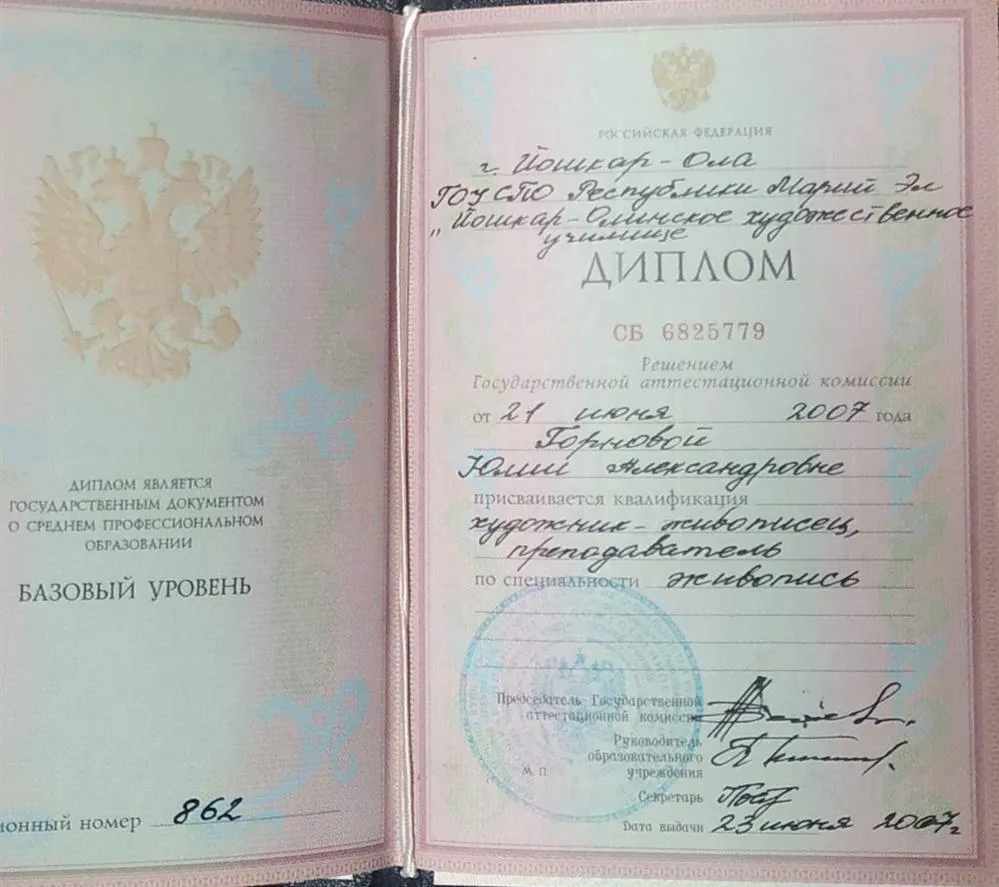 ДИПЛОМ ЯВЛЯЕТСЯ
ГОСУДАРСТВЕННЫМ ДОКУМЕНТОМ
О СРЕДНЕМ ПРОФЕССИОНАЛЬНОМ
ОБРАЗОВАНИИ
БАЗОВЫЙ УРОВЕНЬ
ионный номер 862
РОССИЙСКАЯ ФЕДЕРАЦИЯ
г. Йошкар-Ола
ГОУ СПО Республики Марий Эл
„Йошкар-Олинское художественное
училище
ДИПЛОМ
СБ 6825779
Решением
Государственной аттестационной комиссии
от 21 июня 2007 года
Горновой
Юлии Александровне
присваивается квалификация
художник-живописец,
преподаватель
по специальности живопись
Председатель Государственной
аттестационной комиссии
Руководитель
образовательного
М. П. учреждения
Секретарь
Дата выдачи 23 июня 2007г